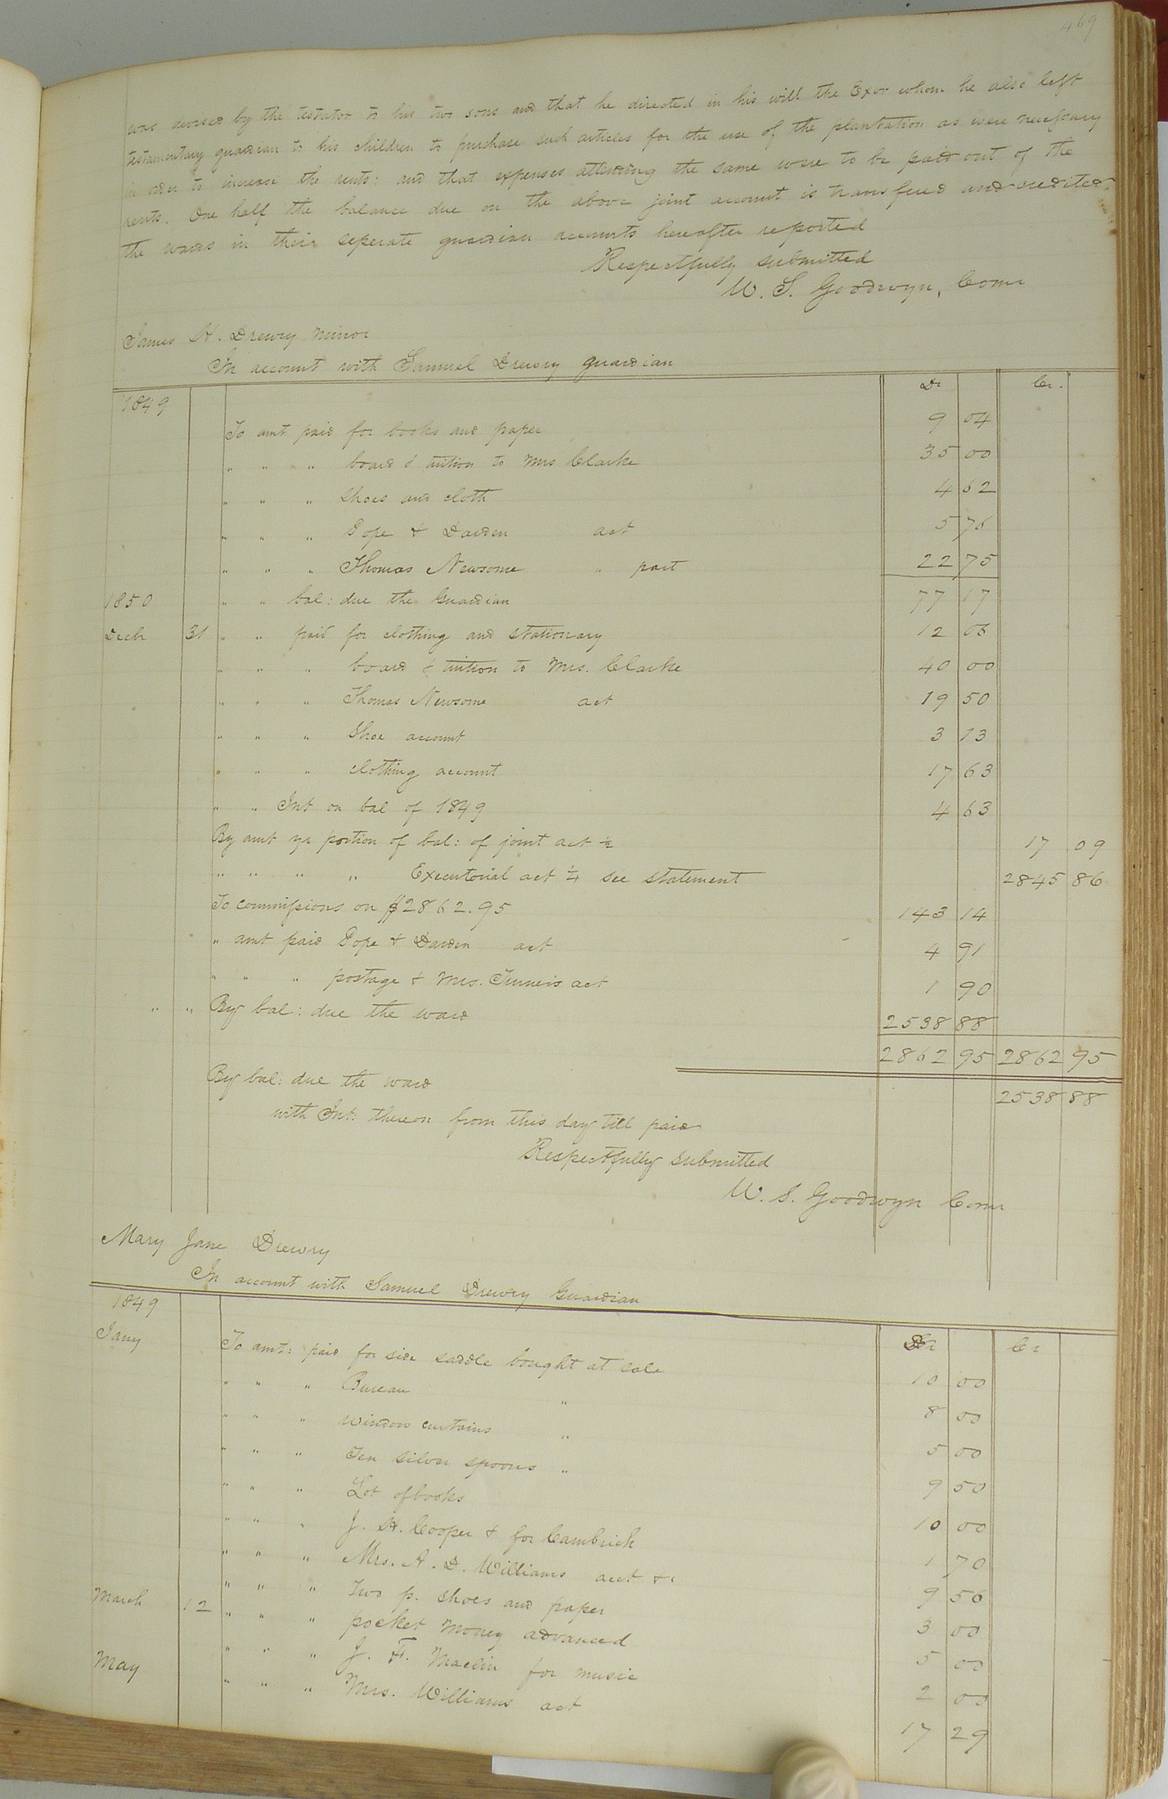 469
was devised by the testator to his two sons and that he directed in his will the Exor whom he also left
testamentary guardian to his children to purchase such articles for the use of the plantation as were necessary
in order to increase the rents: and that expenses attending the same were to be paid out of the
rents. One half the balance due on the above joint account is transfered and credited
the wards in their seperate guardian accounts hereafter reported
Respectfully submitted
W. S. Goodwyn, Comr
James H. Drewry minor
In account with Samuel Drewry guardian
Dr Cr.
1849 To amt paid for books and paper 9 04
" " " board & tuition to Mrs Clarke 35 00
" " " Shoes and cloth 4 62
" " " Pope & Darden act 5 76
" " " Thomas Newsome " part 22 75
1850 " " bal: due the Guardian 77 17
Decb 31 " " paid for clothing and stationary 12 03
" " " board & tuition to Mrs. Clarke 40 00
" " " Thomas Newsome act 19 50
" " " Shoe account 3 13
" " " clothing account 17 63
" " Int on bal of 1849 4 63
By amt yr portion of bal: of joint act ½ 17 09
" " " " Executorial act ¼ see statement 2845 86
To commissions on $2862.95 143 14
" amt paid Pope & Darden act 4 91
" " " postage & Mrs. Turners act 1 90
" " By bal: due the ward 2538 88
2862 95 2862 95
By bal: due the ward 2538 88
with Int: thereon from this day till paid
Respectfully submitted
W. S. Goodwyn Comr
Mary Jane Drewry
In account with Samuel Drewry Guardian
1849 Dr Cr
Jany To amt: paid for side saddle bought at sale 10 00
" " " Bureau " 8 00
" " " window curtains " 5 00
" " " Ten silver spoons " 9 50
" " " Lot of books 10 00
" " " J. H. Cooper & for Cambrick 1 70
" " " Mrs. A. D. Williams act &c 9 56
March 12 " " " Two p. shoes and paper 3 00
" " " pocket money advanced 5 00
May " " " J. F. Maclin for music 2 00
" " " Mrs. Williams act 17 29